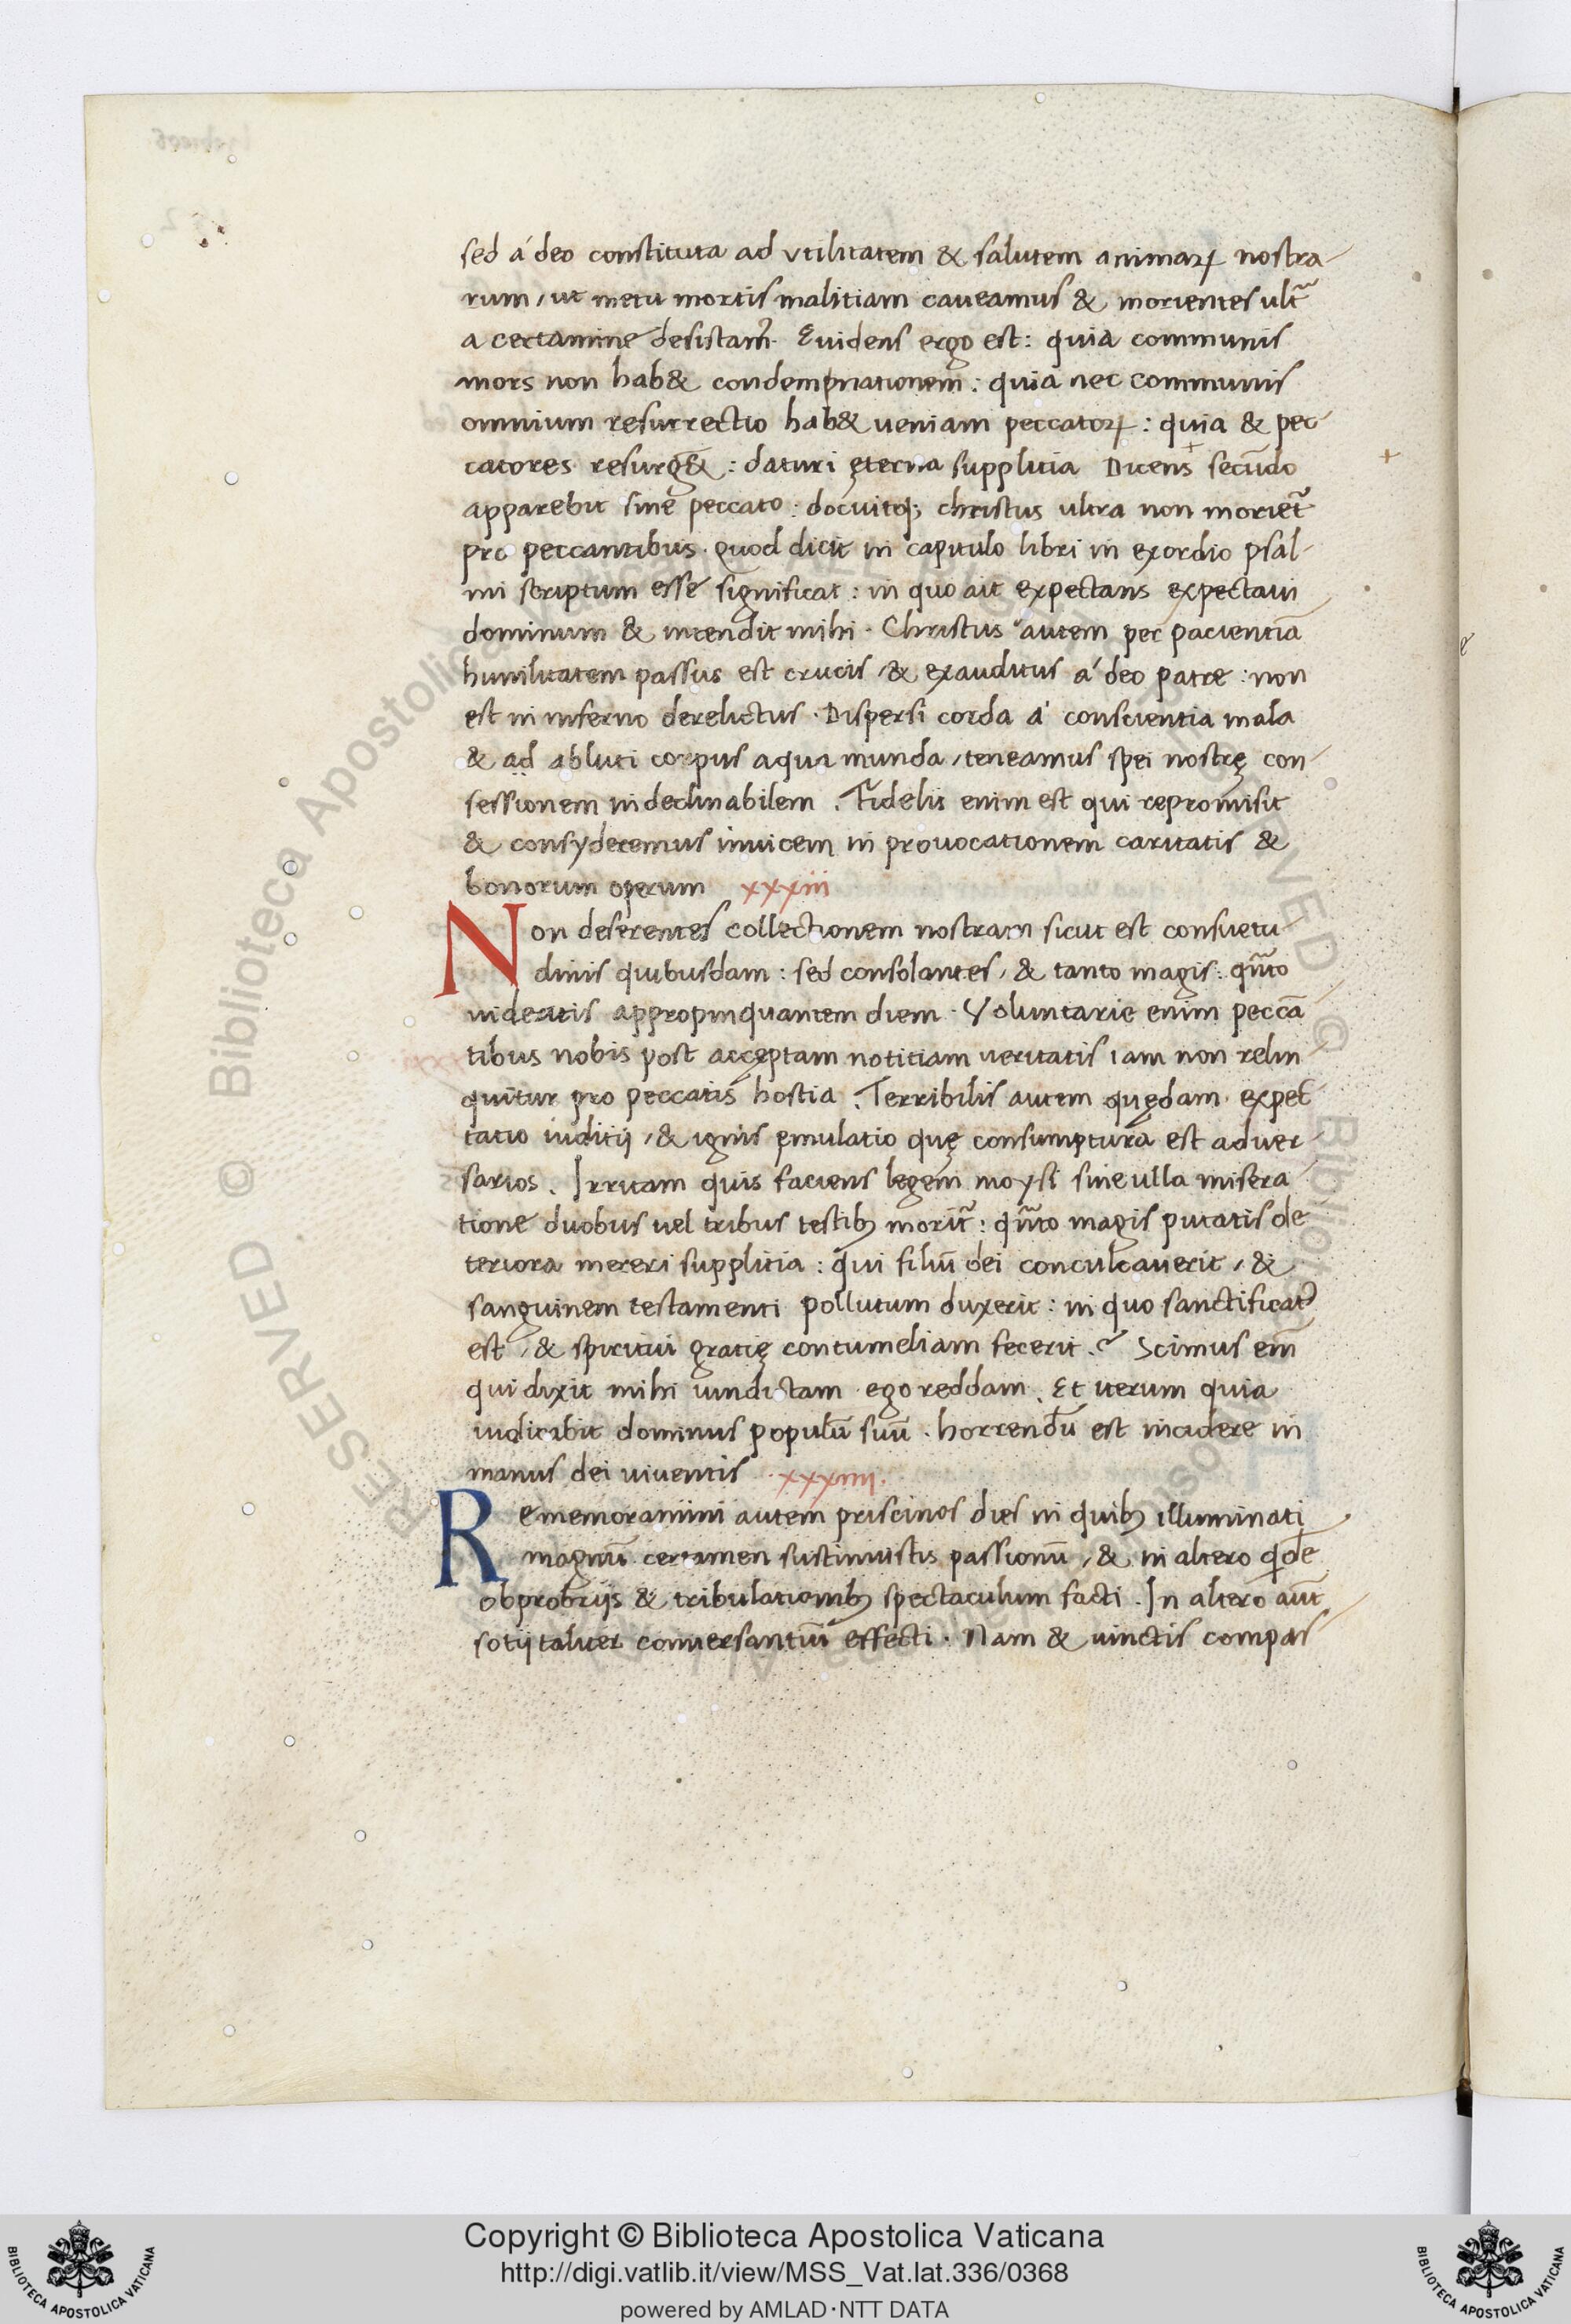 sed a´ deo constituta ad vtilitatem & salutem animaꝝ nostra-
rum, ut metu mortis malitiam caveamus & morientes ultᷓ
a certamine desistam᷒. Euidens ergo est: quia communis
mors non hab& condempnationem: quia nec communis
omnium resurrectio hab& ueniam peccatoꝝ: quia & pec-
catores resurg&: daturi ęterna supplitia Dicens secūdo
apparebit sine peccato: docuitqꝫ christus ultra non moriet᷑
pro peccantibus. quod dicit in capitulo libri in exordio psal-
mi scriptum esse significat: in quo ait expectans expectaui
dominum & intendit mihi. Christus autem per pacientiā
humilitatem passus est crucis, & exauditus a´ deo patre: non
est in inferno derelictus. Dispersi corda a´ conscientia mala
& ad abluti corpus aqua munda, teneamus spei nostrę con-
fessionem indeclinabilem. Fidelis enim est qui repromisit
& consyderemus invicem in prouocationem caritatis &
bonorum operum xxxiii
Non deserentes collectionem nostram sicut est consuetu-
dinis quibusdam: sed consolantes, & tanto magis: qūto
uideatis appropinquantem diem. Voluntarie enim peccā
tibus nobis post acceptam notitiam ueritatis iam non relin-
quitur pro peccatis hostia. Terribilis autem quędam expec
tatio iuditij, & ignis ęmulatio quę consumptura est aduer-
sarios. Irritam quis faciens legem moysi sine ulla misera
tione duobus uel tribus testibꝫ morit᷑: qūto magis putatis de
teriora mereri supplitia: qui filiū dei conculcauerit, &
sanguinem testamenti pollutum duxerit: in quo sanctificatꝰ
est, & spiritui gratię contumeliam fecerit.? Scimus em̄
qui dixit mihi uindictam ego reddam. Et iterum quia
iudicabit dominus populū suū. horrendū est incidere in
manus dei uiuentis .xxxiiii.
Rememoramini autem priscinos dies in quibꝫ illuminati
magnū certamen sustinuistis passionū, & in altero qͥde
obprobrijs & tribulationibꝫ spectaculum facti. In altero aūt
sotij taliter conuersantiū effecti. Nam & uinctis compas-
Copyright © Biblioteca Apostolica Vaticana
http://digi.vatlib.it/view/MSS_Vat.lat.336/0368
powered by AMLAD·NTT DATA
BIBLIOTECA APOSTOLICA VATICANA
BIBLIOTECA APOSTOLICA VATICANA